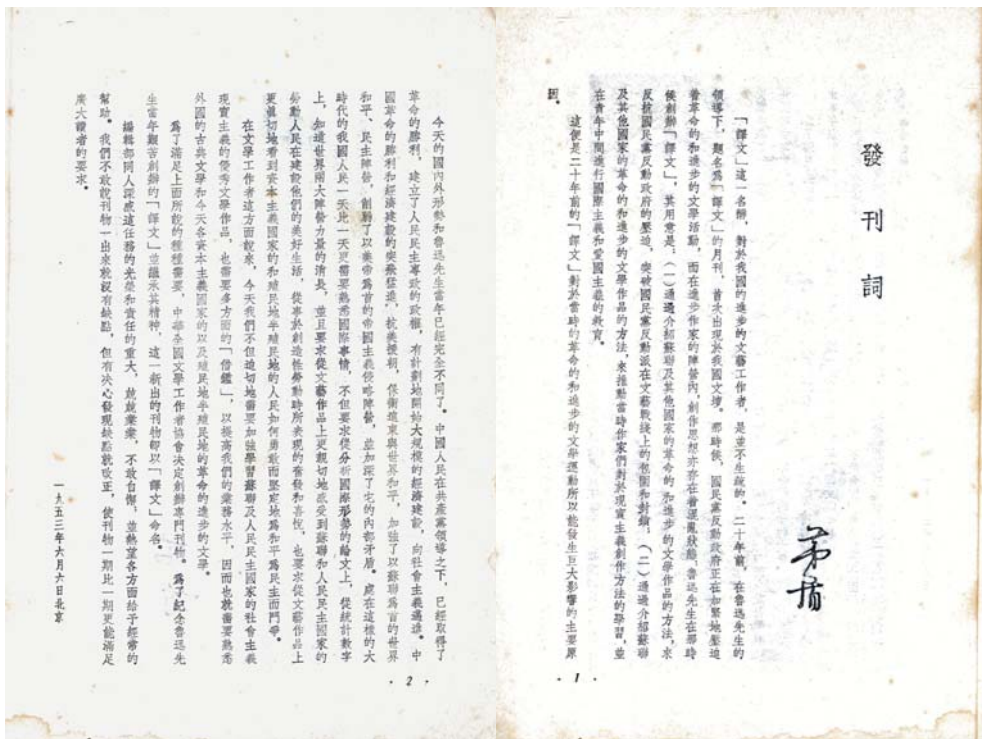 發刊詞
茅盾
「譯文」這一名辭，對於我國的進步的文藝工作者，是並不生疏的。二十年前，在魯迅先生的
領導下，題名為「譯文」的月刊，首次出現於我國文壇。那時候，國民黨反動政府正在加緊地壓迫
着革命的和進步的文學活動，而在進步作家的陣營內，創作思想亦存在着混亂狀態。魯迅先生在那時
候創辦「譯文」，其用意是：（一）通過介紹蘇聯及其他國家的革命的和進步的文學作品的方法，來
反抗國民黨反動政府的壓迫，突破國民黨反動派在文藝戰綫上的包圍和封鎖；（二）通過介紹蘇聯
及其他國家的革命的和進步的文學作品的方法，來推動當時作家們對於現實主義創作方法的學習，並
在青年中間進行國際主義和愛國主義的教育。
這便是二十年前的「譯文」對於當時的革命的和進步的文學運動所以能發生巨大影響的主要原
因。
· 1 ·
今天的國內外形勢和魯迅先生當年已經完全不同了。中國人民在共產黨領導之下，已經取得了
革命的勝利，建立了人民民主專政的政權，有計劃地開始大規模的經濟建設，向社會主義邁進。中
國革命的勝利和經濟建設的突飛猛進，抗美援朝，保衛遠東與世界和平，加強了以蘇聯為首的世界
和平、民主陣營，削弱了以美帝為首的帝國主義侵略陣營，並加深了它的內部矛盾。處在這樣的大
時代的我國人民一天比一天更需要熟悉國際事情，不但要求從分析國際形勢的論文上，從統計數字
上，知道世界兩大陣營力量的消長，並且要求從文藝作品上更親切地感受到蘇聯和人民民主國家的
勞動人民在建設他們的美好生活，從事於創造性勞動時所表現的奮發和喜悅，也要求從文藝作品上
更真切地看到資本主義國家的和殖民地半殖民地的人民如何勇敢而堅定地為和平為民主而鬥爭。
在文學工作者這方面說來，今天我們不但迫切地需要加強學習蘇聯及人民民主國家的社會主義
現實主義的優秀文學作品，也需要多方面的「借鑑」，以提高我們的業務水平，因而也就需要熟悉
外國的古典文學和今天各資本主義國家的以及殖民地半殖民地的革命的進步的文學。
為了滿足上面所說的種種需要，中華全國文學工作者協會決定創辦專門刊物。為了紀念魯迅先
生當年艱苦創辦的「譯文」並繼承其精神，這一新出的刊物即以「譯文」命名。
編輯部同人深感這任務的光榮和責任的重大，兢兢業業，不敢自懈，並熱望各方面給予經常的
幫助。我們不敢說刊物一出來就沒有缺點，但有決心發現缺點就改正，使刊物一期比一期更能滿足
廣大讀者的要求。
一九五三年六月六日北京
· 2 ·